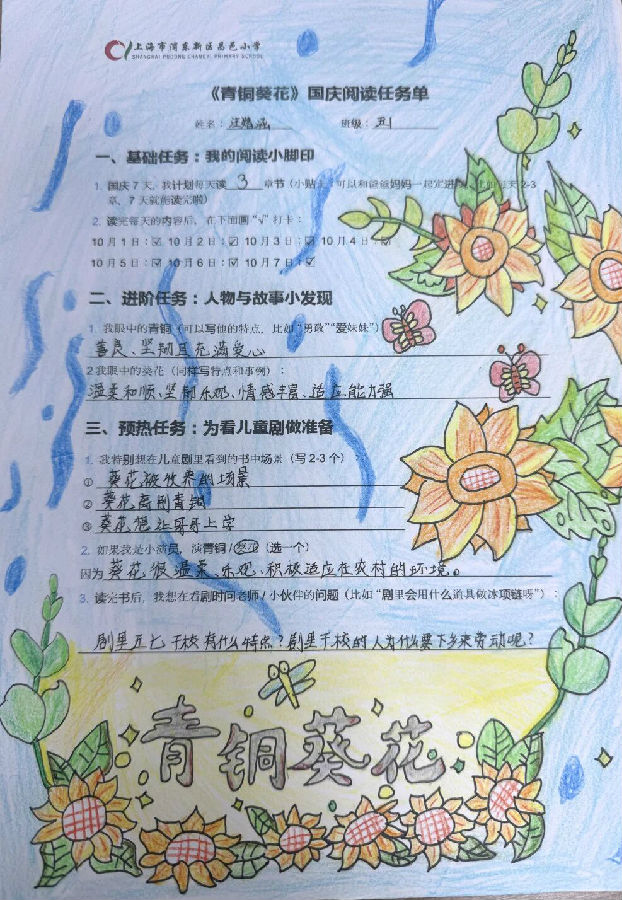 上海市浦东新区昌邑小学
SHANGHAI PUDONG CHANGYI PRIMARY SCHOOL
《青铜葵花》国庆阅读任务单
姓名： 班级：五1
一、基础任务：我的阅读小脚印
1. 国庆7天，我计划每天读 3 章节（小贴士：可以和爸爸妈妈一起定进 2-3
章，7天就能读完啦）
2. 读完每天的内容后，在下面画“√”打卡：
10月1日：☑ 10月2日：☑ 10月3日：☑ 10月4日：☑
10月5日：☑ 10月6日：☑ 10月7日：☑
二、进阶任务：人物与故事小发现
1. 我眼中的青铜（可以写他的特点，比如“勇敢”“爱妹妹”）
善良、坚韧且充满爱心
2 我眼中的葵花（同样写特点和事例）：
温柔和顺、坚韧乐观、情感丰富、适应能力强
三、预热任务：为看儿童剧做准备
1. 我特别想在儿童剧里看到的书中场景（写2-3个）：
① 葵花被收养的场景
② 葵花离别青铜
③ 葵花想让哥哥上学
2. 如果我是小演员，演青铜/葵花（选一个）
因为 葵花很温柔、乐观、积极适应在农村的环境。
3. 读完书后，我想在看剧时问老师/小伙伴的问题（比如“剧里会用什么道具做冰项链呀”）：
剧里五七干校有什么特点？剧里干校的人为什么要下乡来劳动呢？
青铜葵花